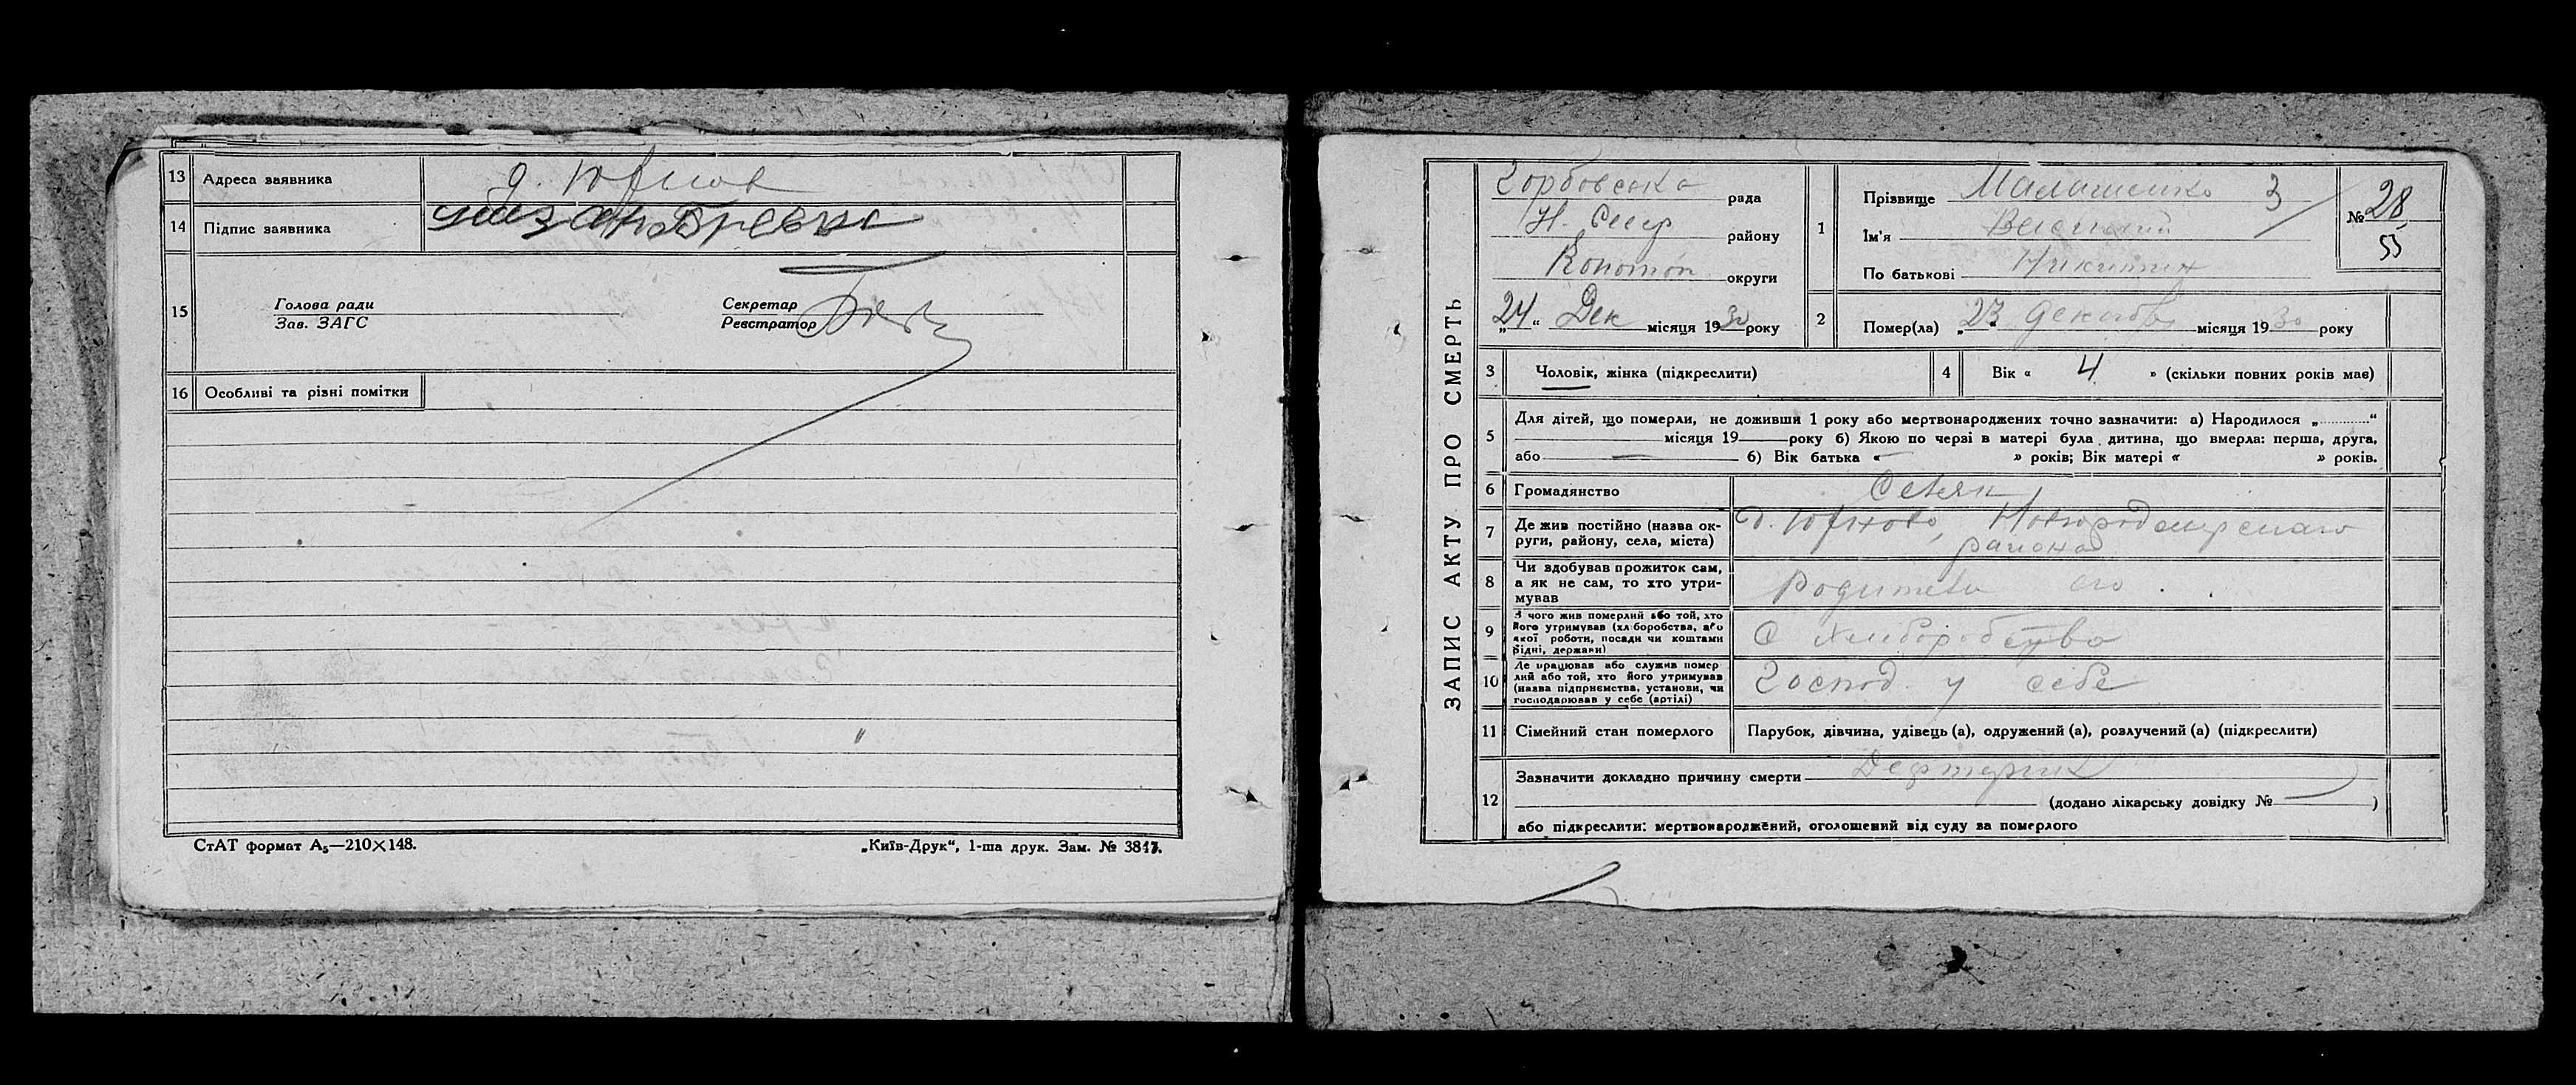 13 Адреса заявника
14 Підпис заявника
15
Голова ради
Зав. ЗАГС
Секретар
Реєстратор
16 Особливі та різні помітки
СтАТ формат А₅—210×148.
„Київ-Друк“, 1-ша друк. Зам. № 3817.
ЗАПИС АКТУ ПРО СМЕРТЬ
Горбовська рада
Н. Север району
Конотоп округи
„24“ Дек місяця 1930 року
1 Прізвище Малашенко 3
Ім'я Василий
По батькові Никитич
№ 28
53
2 Помер(ла) „23 Декабря місяця 1930 року
3 Чоловік, жінка (підкреслити)
4 Вік « 4 » (скільки повних років має)
5 Для дітей, що померли, не доживши 1 року або мертвонароджених точно зазначити: а) Народилося „..........“
місяця 19 року б) Якою по черзі в матері була дитина, що вмерла: перша, друга,
або б) Вік батька « » років; Вік матері « » років.
6 Громадянство Селян
7 Де жив постійно (назва округи, району, села, міста) д. Юхново, Новгородсеверского
района
8 Чи здобував прожиток сам,
а як не сам, то хто утри-
мував Родители его
9 З чого жив померлий або той, хто
його утримував (хліборобства, або
якої роботи, посади чи коштами
рідні, держави) С хлиборобство
10 Де працював або служив помер
лий або той, хто його утримував
(назва підприємства, установи, чи
господарював у себе (артілі) Господ. у себе
11 Сімейний стан померлого Парубок, дівчина, удівець (а), одружений (а), розлучений (а) (підкреслити)
12 Зазначити докладно причину смерти Дефтерит
(додано лікарську довідку № )
або підкреслити: мертвонароджений, оголошений від суду за померлого